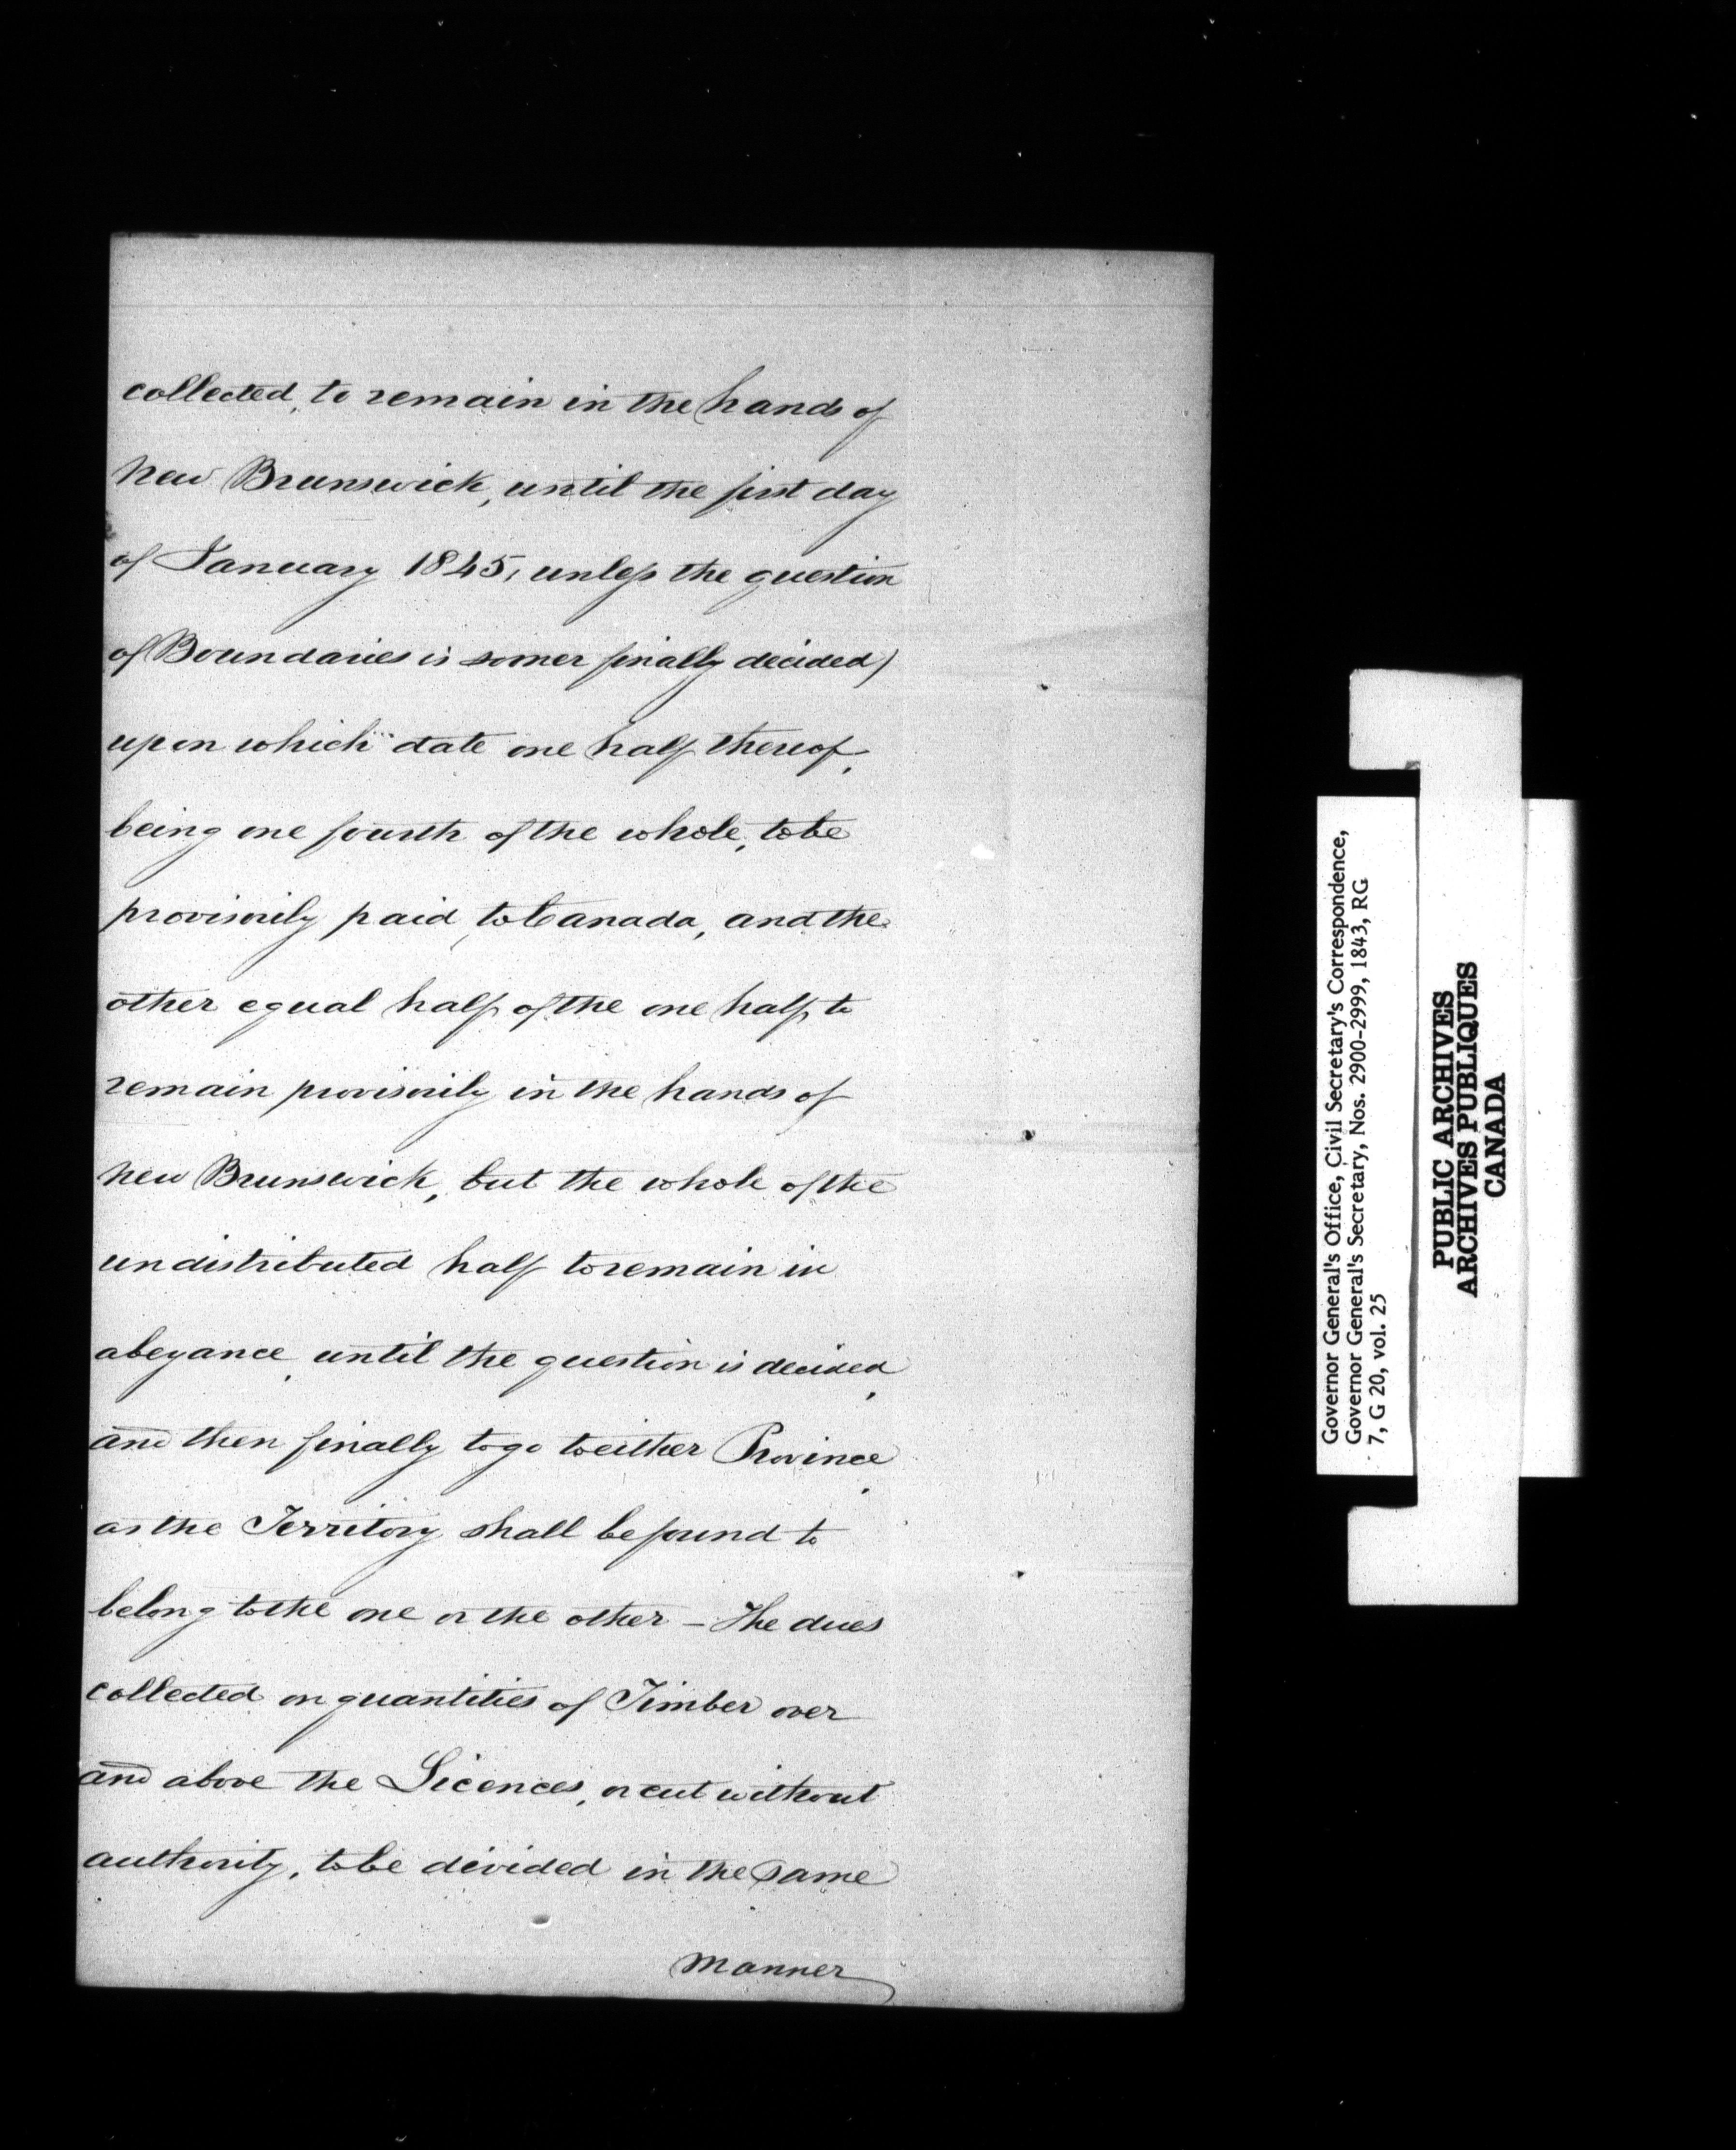 collected, to remain in the hands of
New Brunswick, until the first day
of January 1845, unless the question
of Boundaries is sooner finally decided)
upon which date one half thereof,
being one fourth of the whole, to be
provisorily paid to Canada, and the
other equal half of the one half, to
remain provisorily in the hands of
New Brunswick, but the whole of the
undistributed half to remain in
abeyance, until the question is decided,
and then finally to go to either Province,
as the Territory shall be found to
belong to the one or the other – The dues
collected on quantities of Timber over
and above the Licences, or cut without
authority, to be divided in the same
manner
Governor General's Office, Civil Secretary's Correspondence,
Governor General's Secretary, Nos. 2900-2999, 1843, RG
7, G 20, vol. 25
PUBLIC ARCHIVES
ARCHIVES PUBLIQUES
CANADA